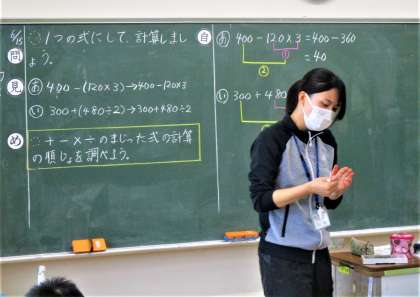 6/6
問 1つの式にして、計算しましょう。
見 あ 400-(120×3)→400-120×3
い 300+(480÷2)→300+480÷2
め + - × ÷ のまじった式の計算
の順じょを調べよう。
自 あ 400-120×3=400-360
①
=40
②
い 300+480